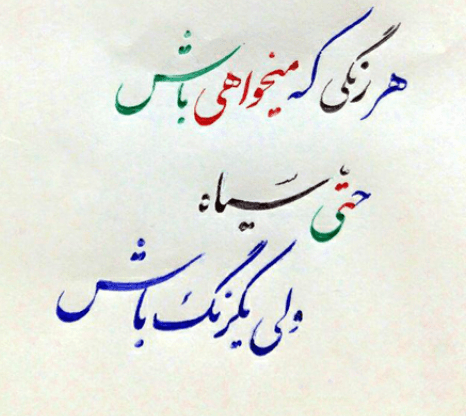 هر رنگی که میخواهی باش
حتی سیاه
ولی یکرنگ باش